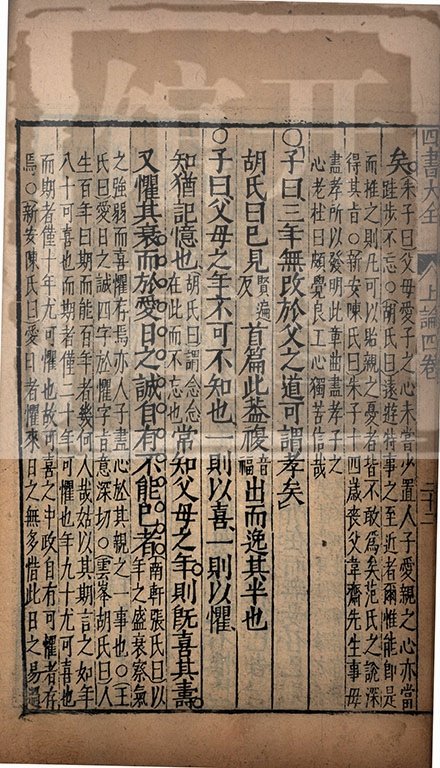 四書大全 上論四卷 二十二
矣。朱子曰父母愛子之心未嘗少置人子愛親之心亦當
跬步不忘○胡氏曰遠遊特事之至近者爾惟能即是
而推之則凡可以貽親之憂者皆不敢爲矣范氏之說深
得其旨○新安陳氏曰朱子十四歲喪父韋齋先生事母
盡孝所以發明此章曲盡孝子之
心老杜曰頗覺良工心獨苦信哉
○子曰三年無改於父之道可謂孝矣
胡氏曰已見賢遍反首篇此葢複音福出而逸其半也
○子曰父母之年不可不知也一則以喜一則以懼
知猶記憶也胡氏曰謂念念在此而不忘也常知父母之年則旣喜其壽
又懼其衰而於愛日之誠自有不能已者南軒張氏曰以年之盛衰察氣
之強弱而喜懼存焉亦人子盡心於其親之一事也○王
氏曰愛日之誠四字於懼字言意深切○雲峯胡氏曰人
生百年曰期而能百年者幾何人哉姑以其期言之如年
八十可喜也而期者僅二十年可懼也年九十尤可喜也
而期者僅十年尤可懼也故可喜之中政自有可懼者存
焉○新安陳氏曰愛日者懼來日之無多惜此日之易過